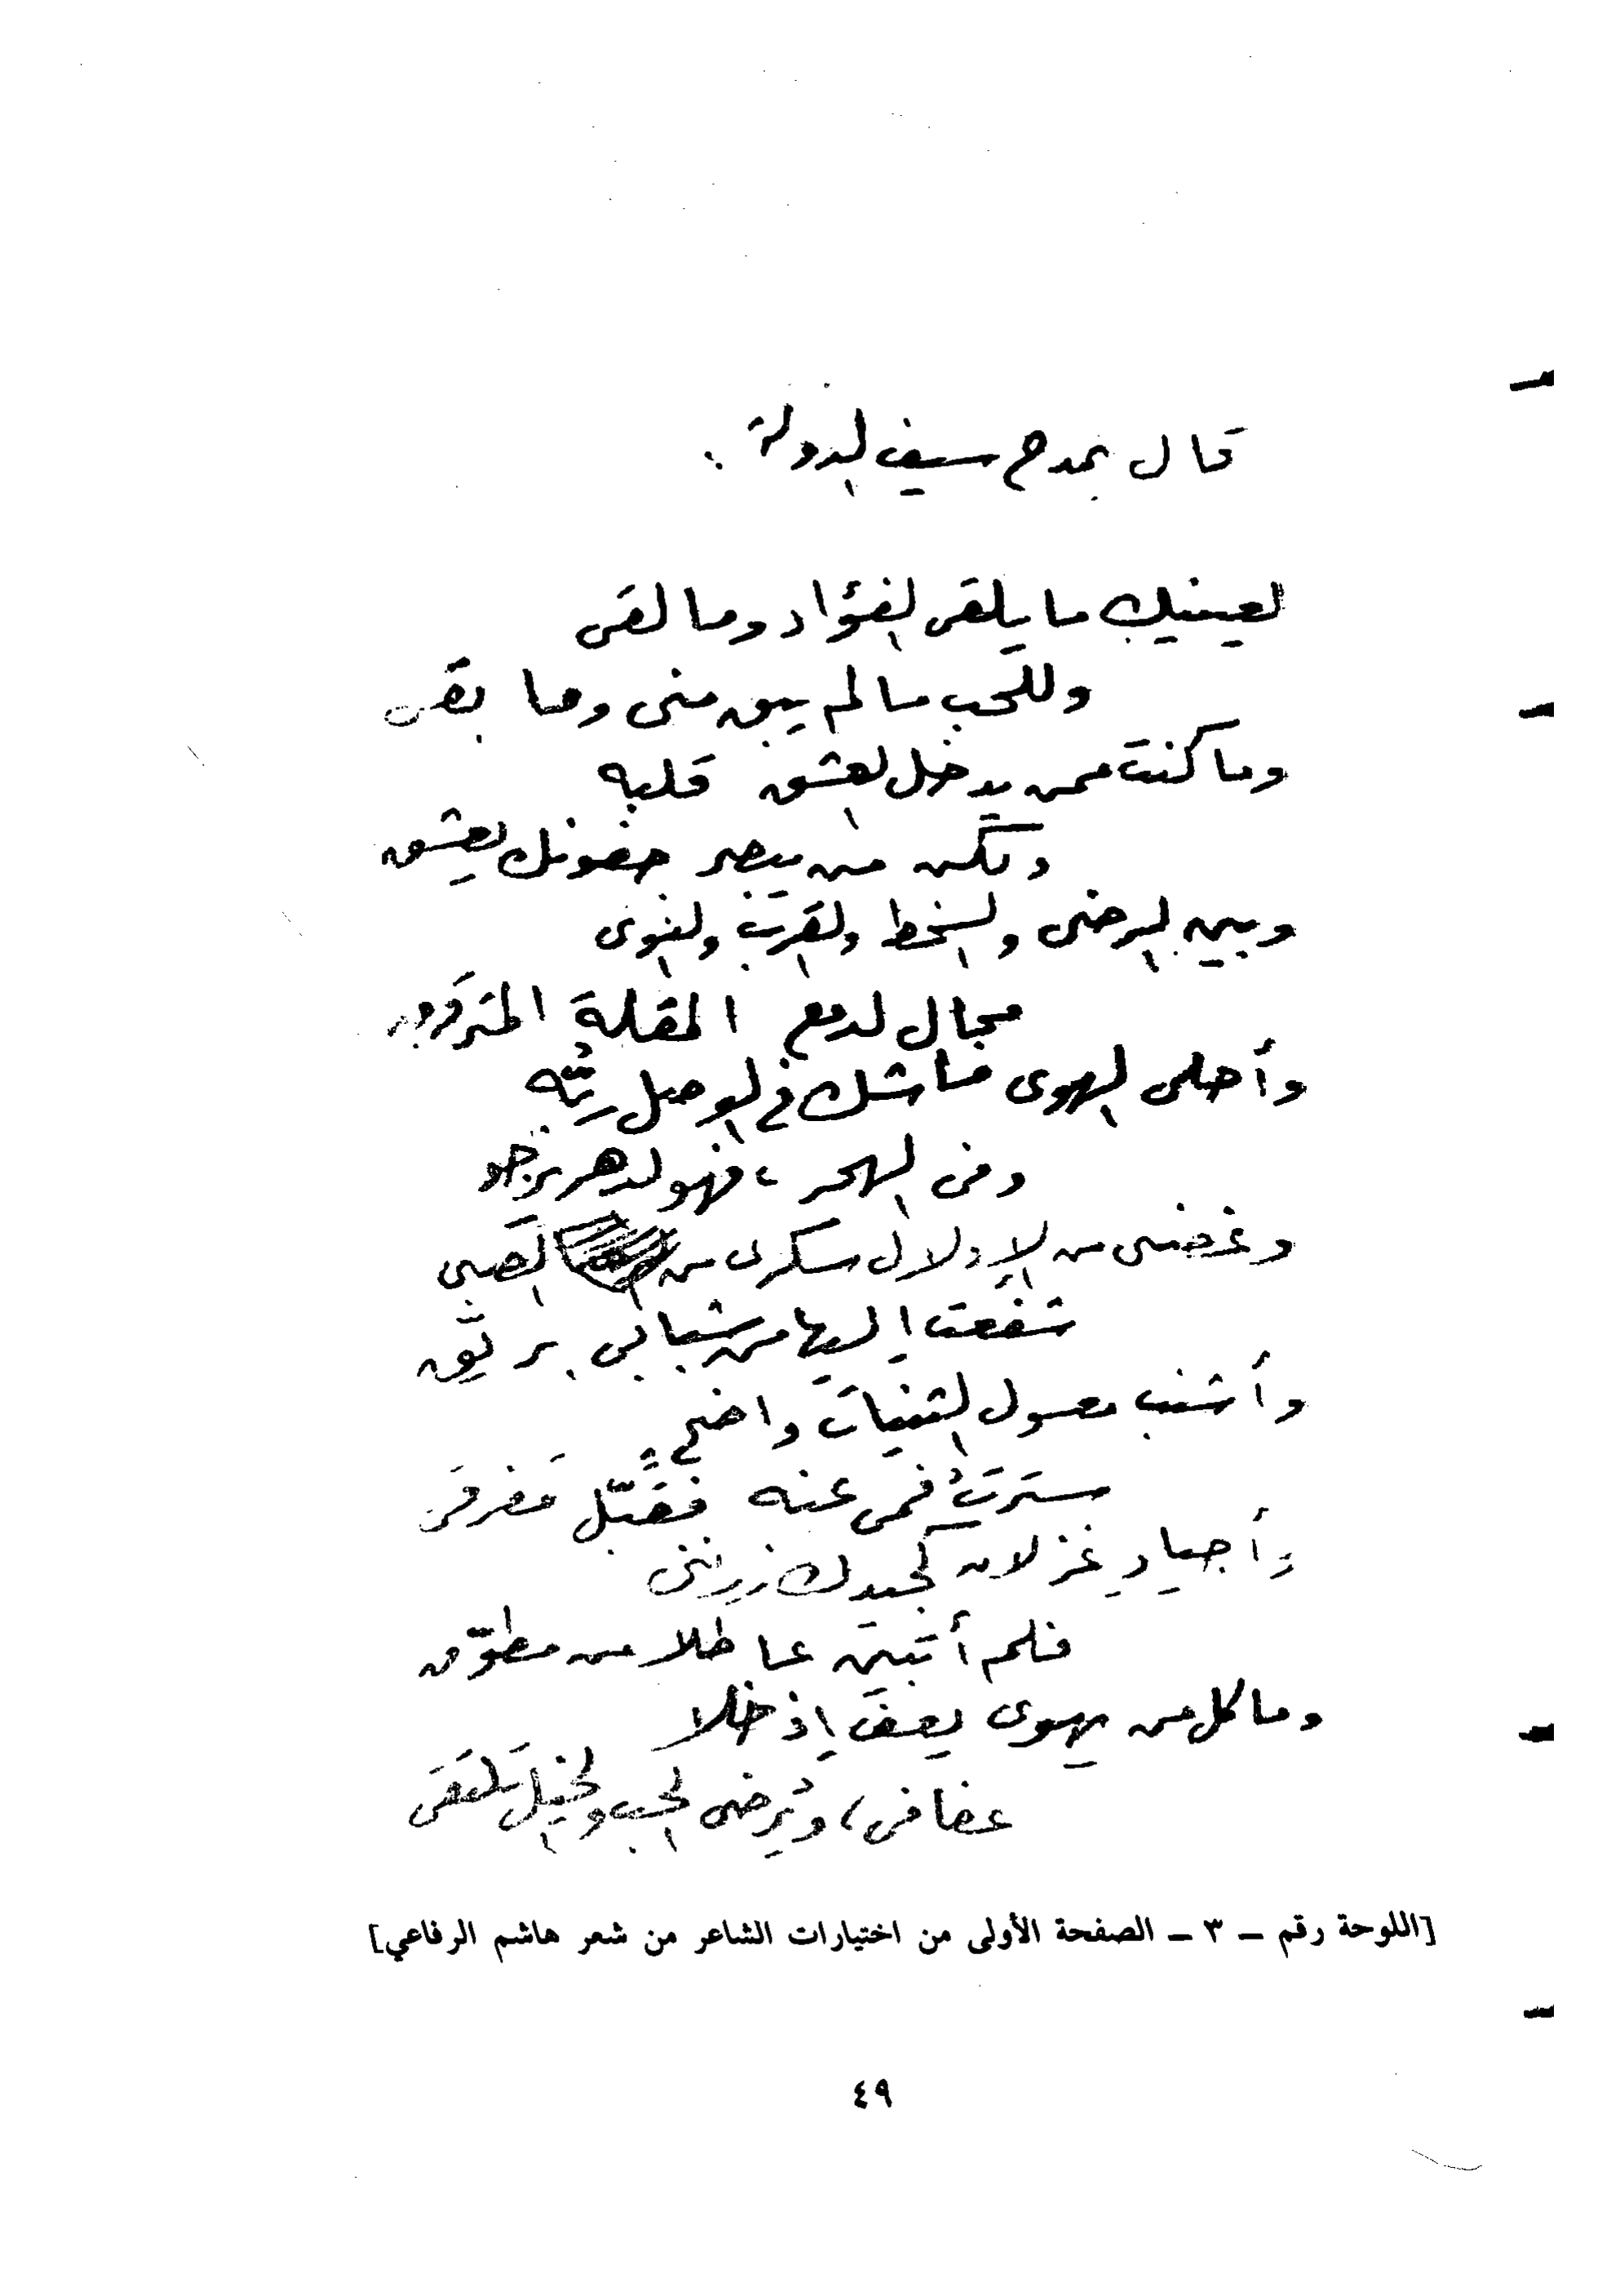 قال يمدح سيف الدولة :
لعينيك ما يلقى الفؤاد وما لقى
وللحب ما لم يبق منى وما بقى
وما كنت ممن يدخل العشق قلبه
ولكن من يبصر جفونك يعشق
وبين الرضى والسخط والقرب والنوى
مجال لدمع المقلة المترقرق
وأحلى الهوى ما شك فى الوصل ربُّه
وفى الهجر ، فهو الدهر يرجو
وغضبى من الإدلال سكرى من الصبى
شفعت إليها من شبابى بريّق
وأشنب معسول الثنيات واضحٍ
سترتُ فمى عنه فقبّل مفرقى
وأجيادِ غزلان كجيدك زرننى
فلم أتبين عاطلا من مطوّق
وما كل من يهوى يعف إذا خلا
عفافى ، ويُرضى الحب والخيل تلتقى
[اللوحة رقم – ٣ – الصفحة الأولى من اختيارات الشاعر من شعر هاشم الرفاعي]
٤٩